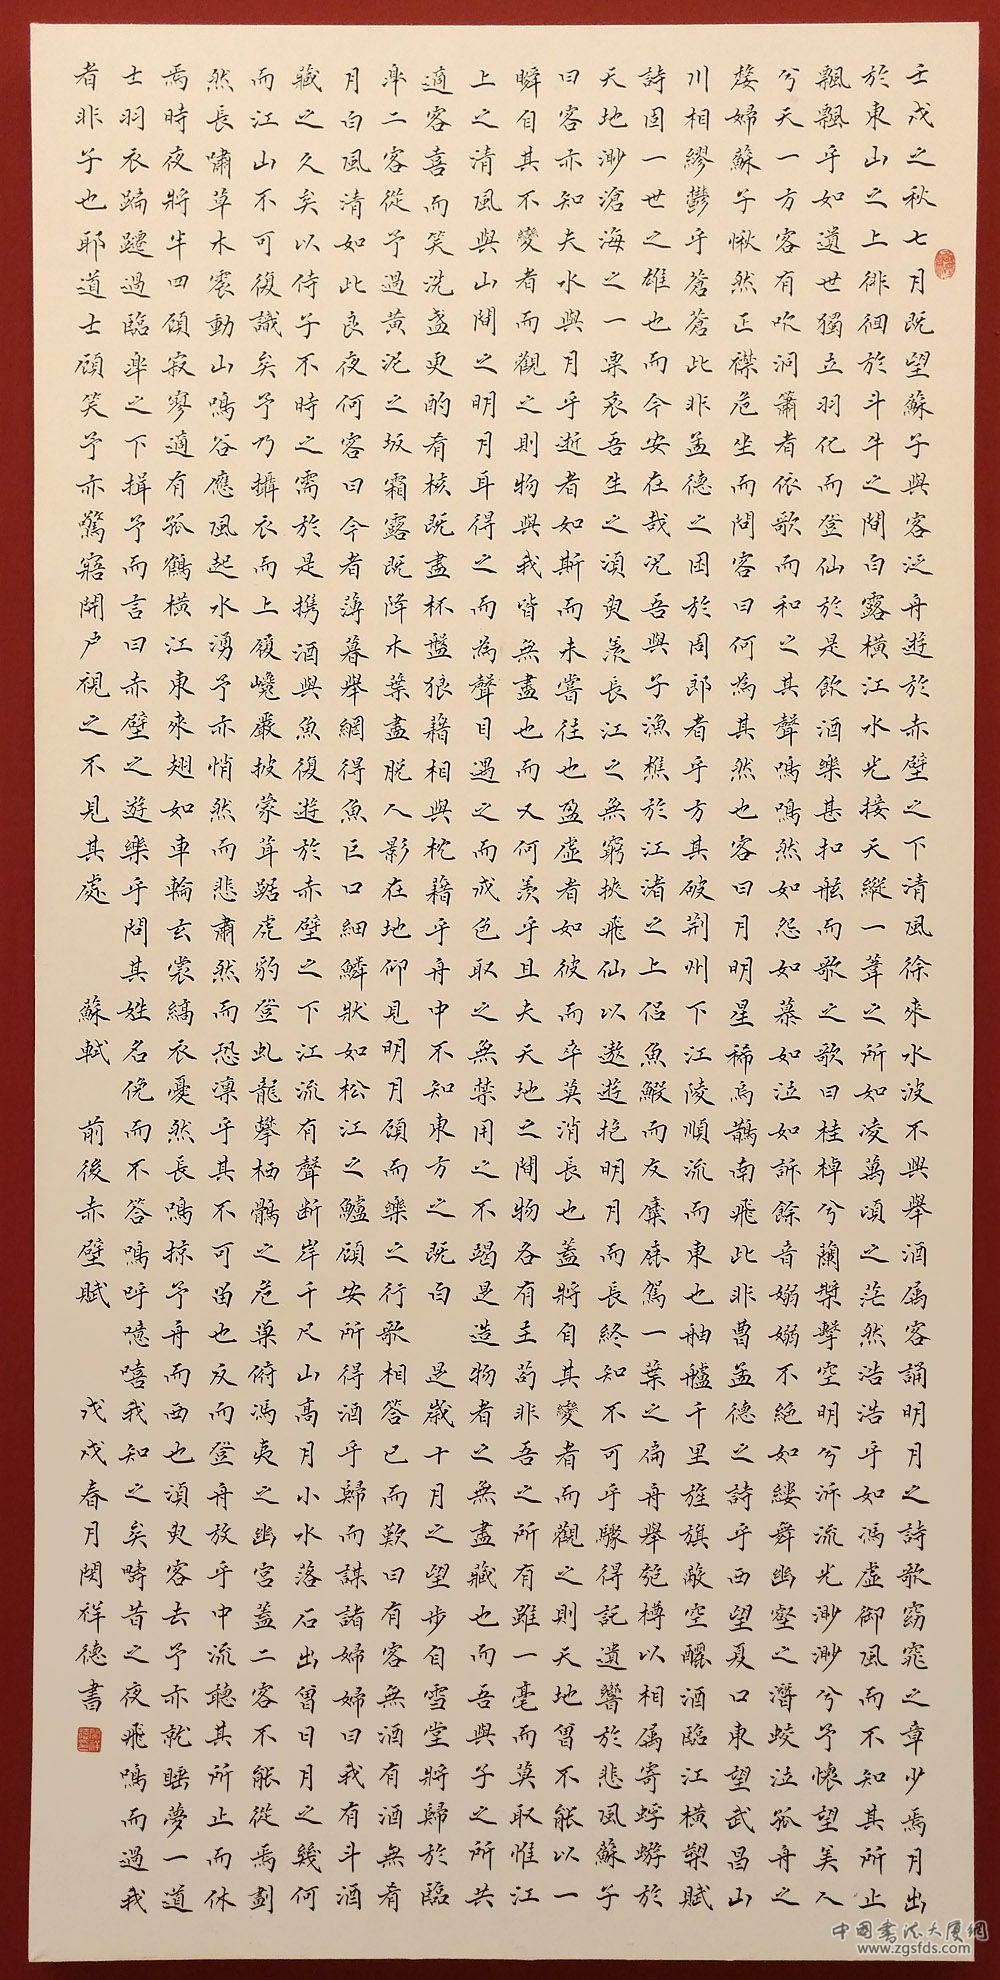 壬戌之秋七月既望蘇子與客泛舟遊於赤壁之下清風徐來水波不興舉酒屬客誦明月之詩歌窈窕之章少焉月出
於東山之上徘徊於斗牛之間白露橫江水光接天縱一葦之所如凌萬頃之茫然浩浩乎如馮虛御風而不知其所止
飄飄乎如遺世獨立羽化而登仙於是飲酒樂甚扣舷而歌之歌曰桂棹兮蘭槳擊空明兮泝流光渺渺兮予懷望美人
兮天一方客有吹洞簫者依歌而和之其聲鳴鳴然如怨如慕如泣如訴餘音嫋嫋不絕如縷舞幽壑之潛蛟泣孤舟之
嫠婦蘇子愀然正襟危坐而問客曰何為其然也客曰月明星稀烏鵲南飛此非曹孟德之詩乎西望夏口東望武昌山
川相繆鬱乎蒼蒼此非孟德之困於周郎者乎方其破荊州下江陵順流而東也舳艫千里旌旗蔽空釃酒臨江橫槊賦
詩固一世之雄也而今安在哉況吾與子漁樵於江渚之上侶魚鰕而友麋鹿駕一葉之扁舟舉匏樽以相屬寄蜉蝣於
天地渺滄海之一粟哀吾生之須臾羨長江之無窮挾飛仙以遨遊抱明月而長終知不可乎驟得託遺響於悲風蘇子
曰客亦知夫水與月乎逝者如斯而未嘗往也盈虛者如彼而卒莫消長也蓋將自其變者而觀之則天地曾不能以一
瞬自其不變者而觀之則物與我皆無盡也而又何羨乎且夫天地之間物各有主苟非吾之所有雖一毫而莫取惟江
上之清風與山間之明月耳得之而為聲目遇之而成色取之無禁用之不竭是造物者之無盡藏也而吾與子之所共
適客喜而笑洗盞更酌肴核既盡杯盤狼藉相與枕藉乎舟中不知東方之既白 是歲十月之望步自雪堂將歸於臨
臯二客從予過黃泥之坂霜露既降木葉盡脫人影在地仰見明月顧而樂之行歌相答已而歎曰有客無酒有酒無肴
月白風清如此良夜何客曰今者薄暮舉網得魚巨口細鱗狀如松江之鱸顧安所得酒乎歸而謀諸婦婦曰我有斗酒
藏之久矣以侍子不時之需於是携酒與魚復遊於赤壁之下江流有聲斷岸千尺山高月小水落石出曾日月之幾何
而江山不可復識矣予乃攝衣而上履巉巖披蒙茸踞虎豹登虬龍攀栖鶻之危巢俯馮夷之幽宮蓋二客不能從焉劃
然長嘯草木震動山鳴谷應風起水湧予亦悄然而悲肅然而恐凛乎其不可留也反而登舟放乎中流聽其所止而休
焉時夜將半四顧寂寥適有孤鶴橫江東來翅如車輪玄裳縞衣戛然長鳴掠予舟而西也須臾客去予亦就睡夢一道
士羽衣蹁躚過臨臯之下揖予而言曰赤壁之遊樂乎問其姓名俛而不答鳴呼噫嘻我知之矣疇昔之夜飛鳴而過我
者非子也耶道士顧笑予亦驚寤開戶視之不見其處 蘇軾 前後赤壁賦 戊戌春月閔祥德書
中国书法大厦网
www.zgsfds.com